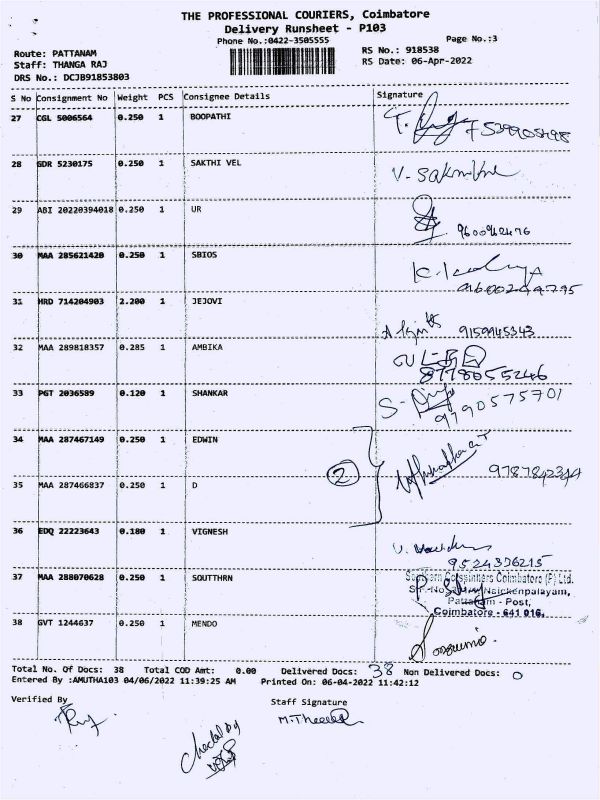 THE PROFESSIONAL COURIERS, Coimbatore
Delivery Runsheet - P103
Phone No.:0422-3505555
Page No.:3
Route: PATTANAM
RS No.: 918538
Staff: THANGA RAJ
RS Date: 06-Apr-2022
DRS No.: DCJB91853803
S No Consignment No Weight PCS Consignee Details Signature
27 CGL 5006564 0.250 1 BOOPATHI
28 GDR 5230175 0.250 1 SAKTHI VEL
29 ABI 20220394018 0.250 1 UR
30 MAA 285621420 0.250 1 SBIOS
31 HRD 714204903 2.200 1 JEJOVI
9159945343
32 MAA 289818357 0.285 1 AMBIKA
8778055246
33 PGT 2036589 0.120 1 SHANKAR
9790575701
34 MAA 287467149 0.250 1 EDWIN
2
35 MAA 287466837 0.250 1 D
36 EDQ 22223643 0.180 1 VIGNESH
9524376215
37 MAA 288070628 0.250 1 SOUTTHRN
Coimbatore (P) Ltd.
Naickenpalayam,
Pattanam - Post,
Coimbatore - 641 016.
38 GVT 1244637 0.250 1 MENDO
Total No. Of Docs: 38 Total COD Amt: 0.00 Delivered Docs: 38 Non Delivered Docs: 0
Entered By :AMUTHA103 04/06/2022 11:39:25 AM Printed On: 06-04-2022 11:42:12
Verified By
Staff Signature